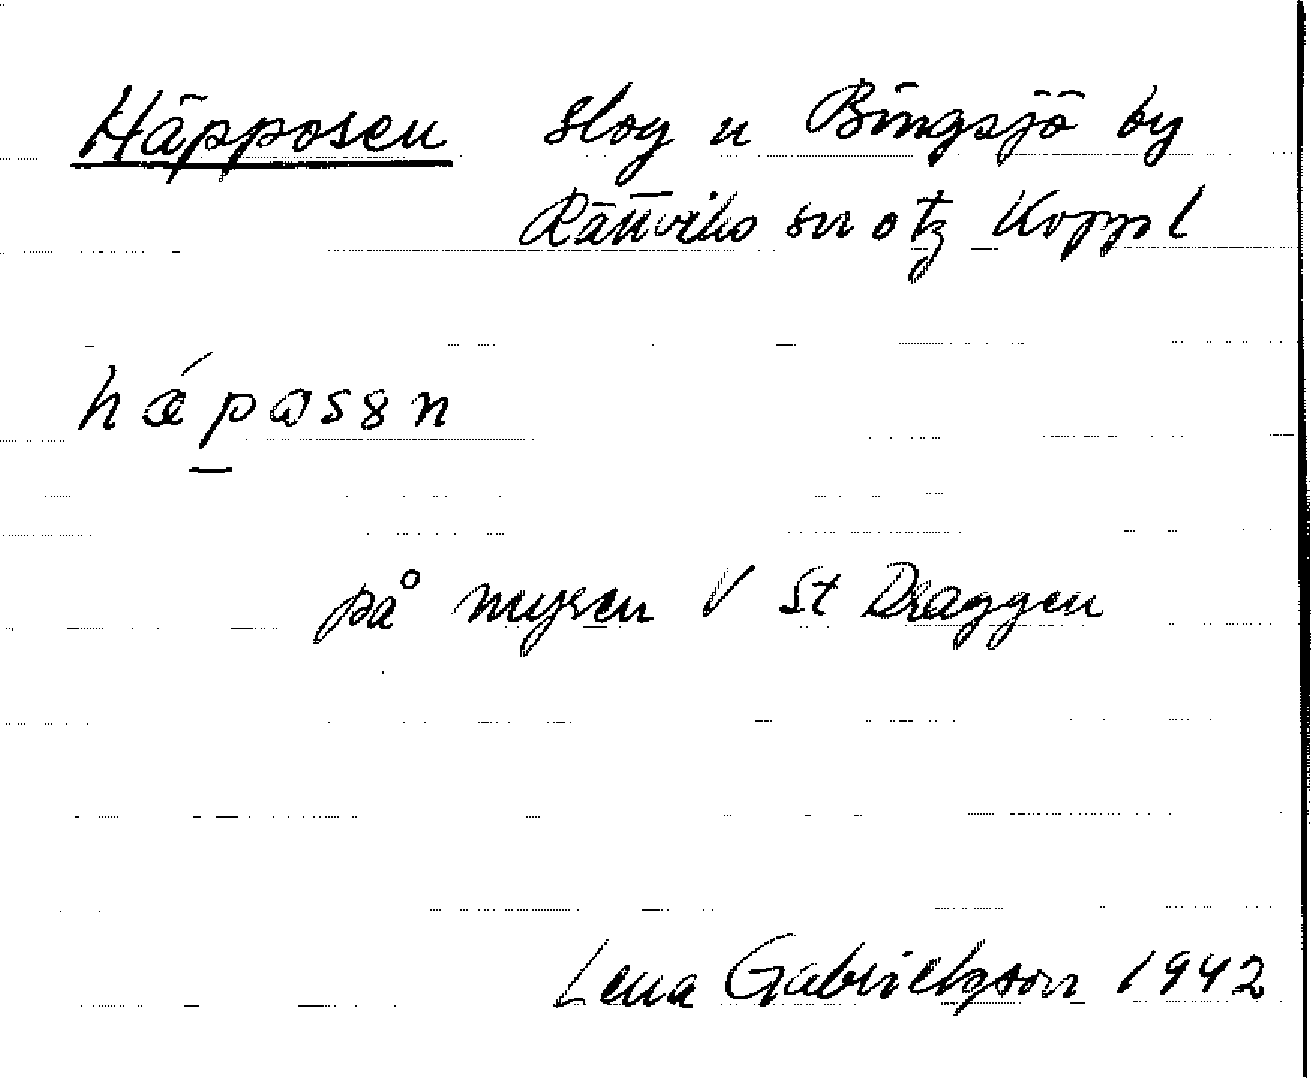 Häpposen slog u Bingsjö by
Rättviks sn o tg Koppl
hǽpasen
på myren V St Draggen
Lena Gabrielsson 1942